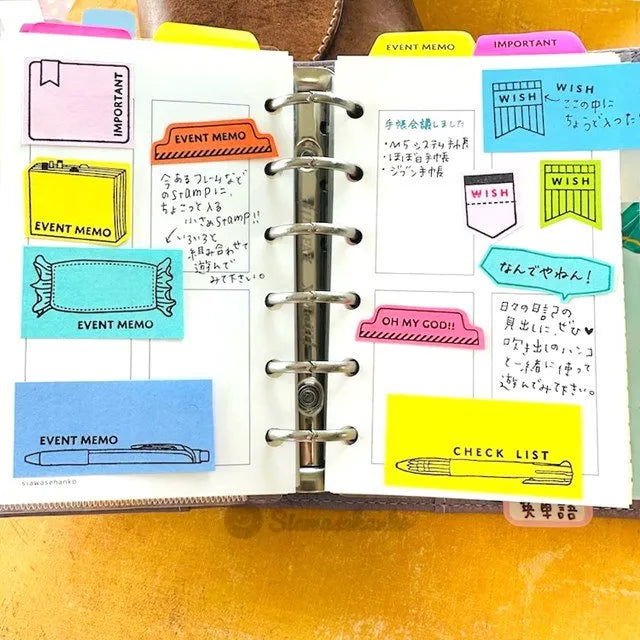 EVENT MEMO
IMPORTANT
IMPORTANT
EVENT MEMO
EVENT MEMO
今あるフレームなど
のstampに、
ちょこっと入る
小さめstamp!!
いろいろと
組み合わせて
遊んで
みて下さい。
EVENT MEMO
EVENT MEMO
siawasehanko
手帳会議しました
・M5システム手帳
・ほぼ日手帳
・ジブン手帳
WISH
WISH
ここの中に
ちょうど入った
WISH
WISH
なんでやねん!
OH MY GOD!!
日々の日記の
見出しに、ぜひ♥
吹き出しのハンコ
と一緒に使って
遊んでみて下さい。
CHECK LIST
英単語
Siawasehanko